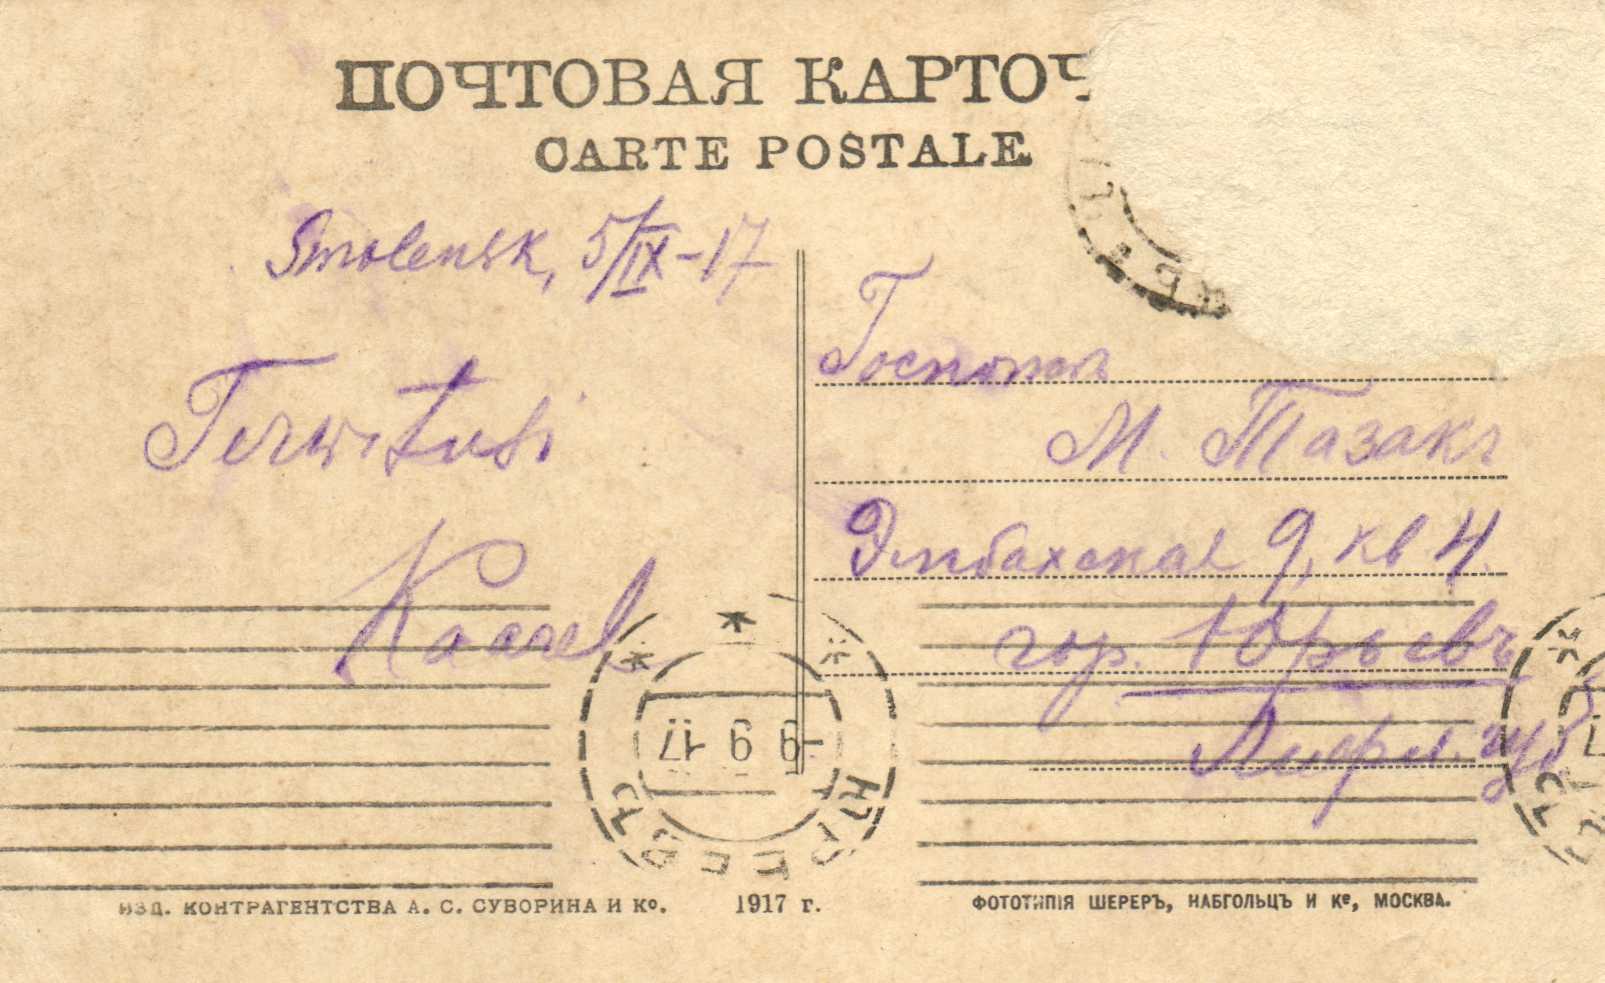 ПОЧТОВАЯ КАРТОЧ
CARTE POSTALE
Smolensk, 5/IX-17
Terwitusi
Kaarel
Госпожа
М. Тазакъ
Эмбахская 9, кв 4.
гор. Юрьевъ
Лифл. губ
-9 9 17
ЮРЬЕВЪ
ИЗД. КОНТРАГЕНТСТВА А. С. СУВОРИНА И Ко.
1917 г.
ФОТОТИПІЯ ШЕРЕРЪ, НАБГОЛЬЦЪ И Ке, МОСКВА.